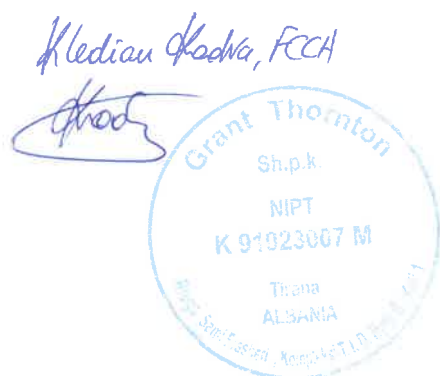 Kledian Kodra, FCCA
Kodra
Grant Thornton
Sh.p.k.
NIPT
K 91923007 M
Tirana
ALBANIA